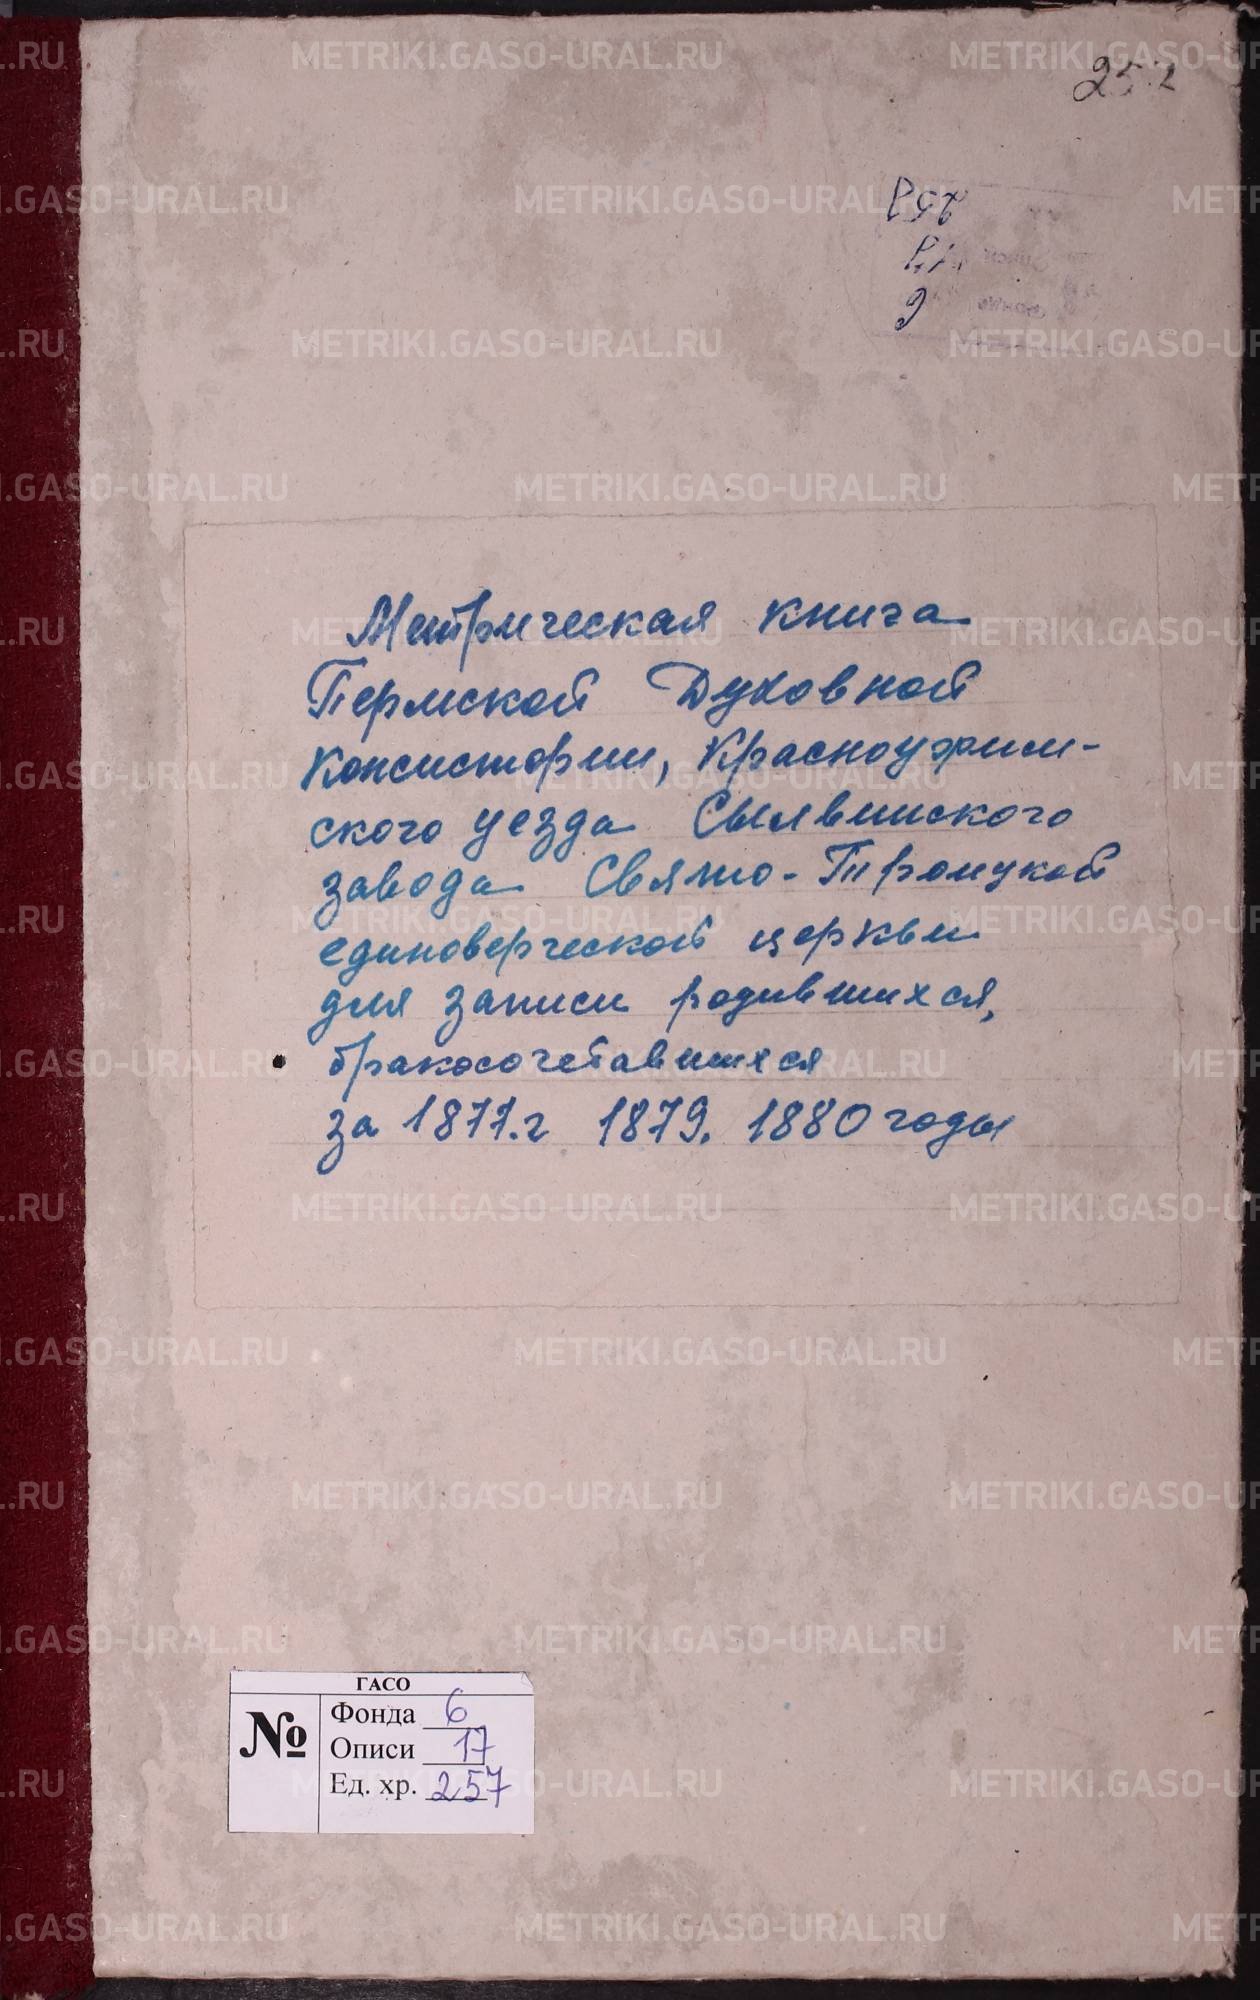 257
Метрическая книга
Пермской Духовной
Консистории, Красноуфим-
ского уезда Сылвинского
завода Свято-Троицкой
единоверческой церкви
для записи родившихся,
бракосочетавшихся
за 1877.г 1879, 1880 годы
ГАСО
№
Фонда 6
Описи 17
Ед. хр. 257
METRIKI.GASO-URAL.RU